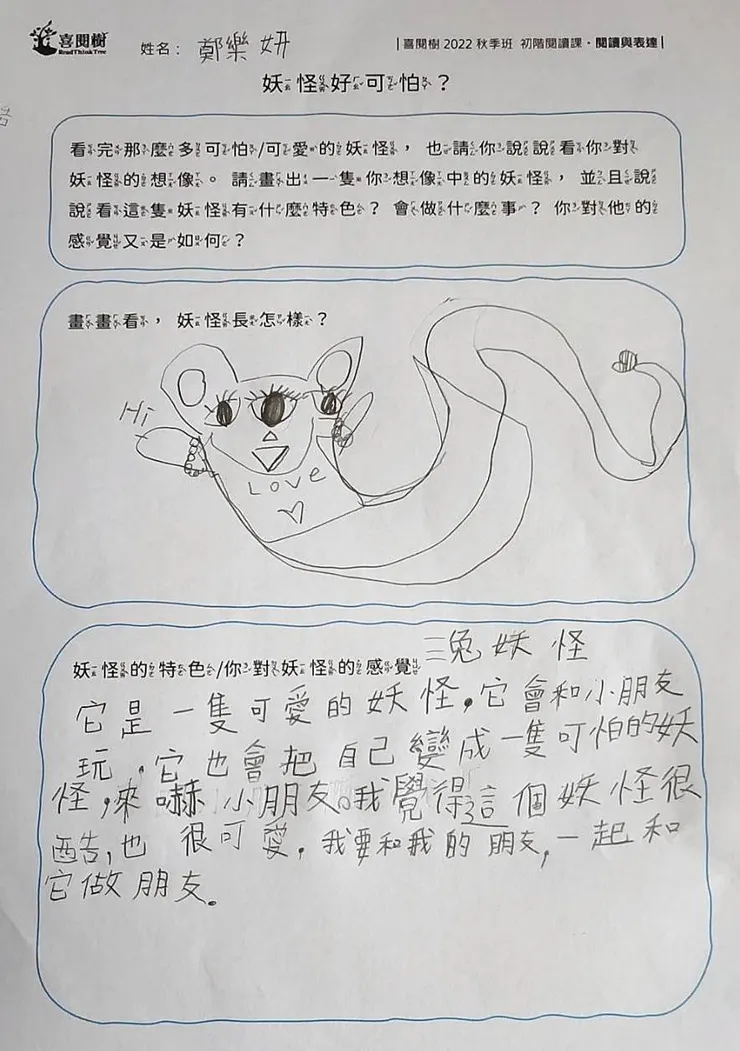 喜閱樹
ReadThinkTree
姓名：鄭樂妍
|喜閱樹 2022 秋季班 初階閱讀課・閱讀與表達|
妖怪好可怕？
看完那麼多可怕/可愛的妖怪，也請你說說看你對
妖怪的想像。請畫出一隻你想像中的妖怪，並且說
說看這隻妖怪有什麼特色？會做什麼事？你對他的
感覺又是如何？
畫畫看，妖怪長怎樣？
Hi
Love
妖怪的特色/你對妖怪的感覺
三兔妖怪
它是一隻可愛的妖怪，它會和小朋友
玩，它也會把自己變成一隻可怕的妖
怪，來嚇小朋友。我覺得這個妖怪很
酷，也很可愛，我要和我的朋友，一起和
它做朋友。